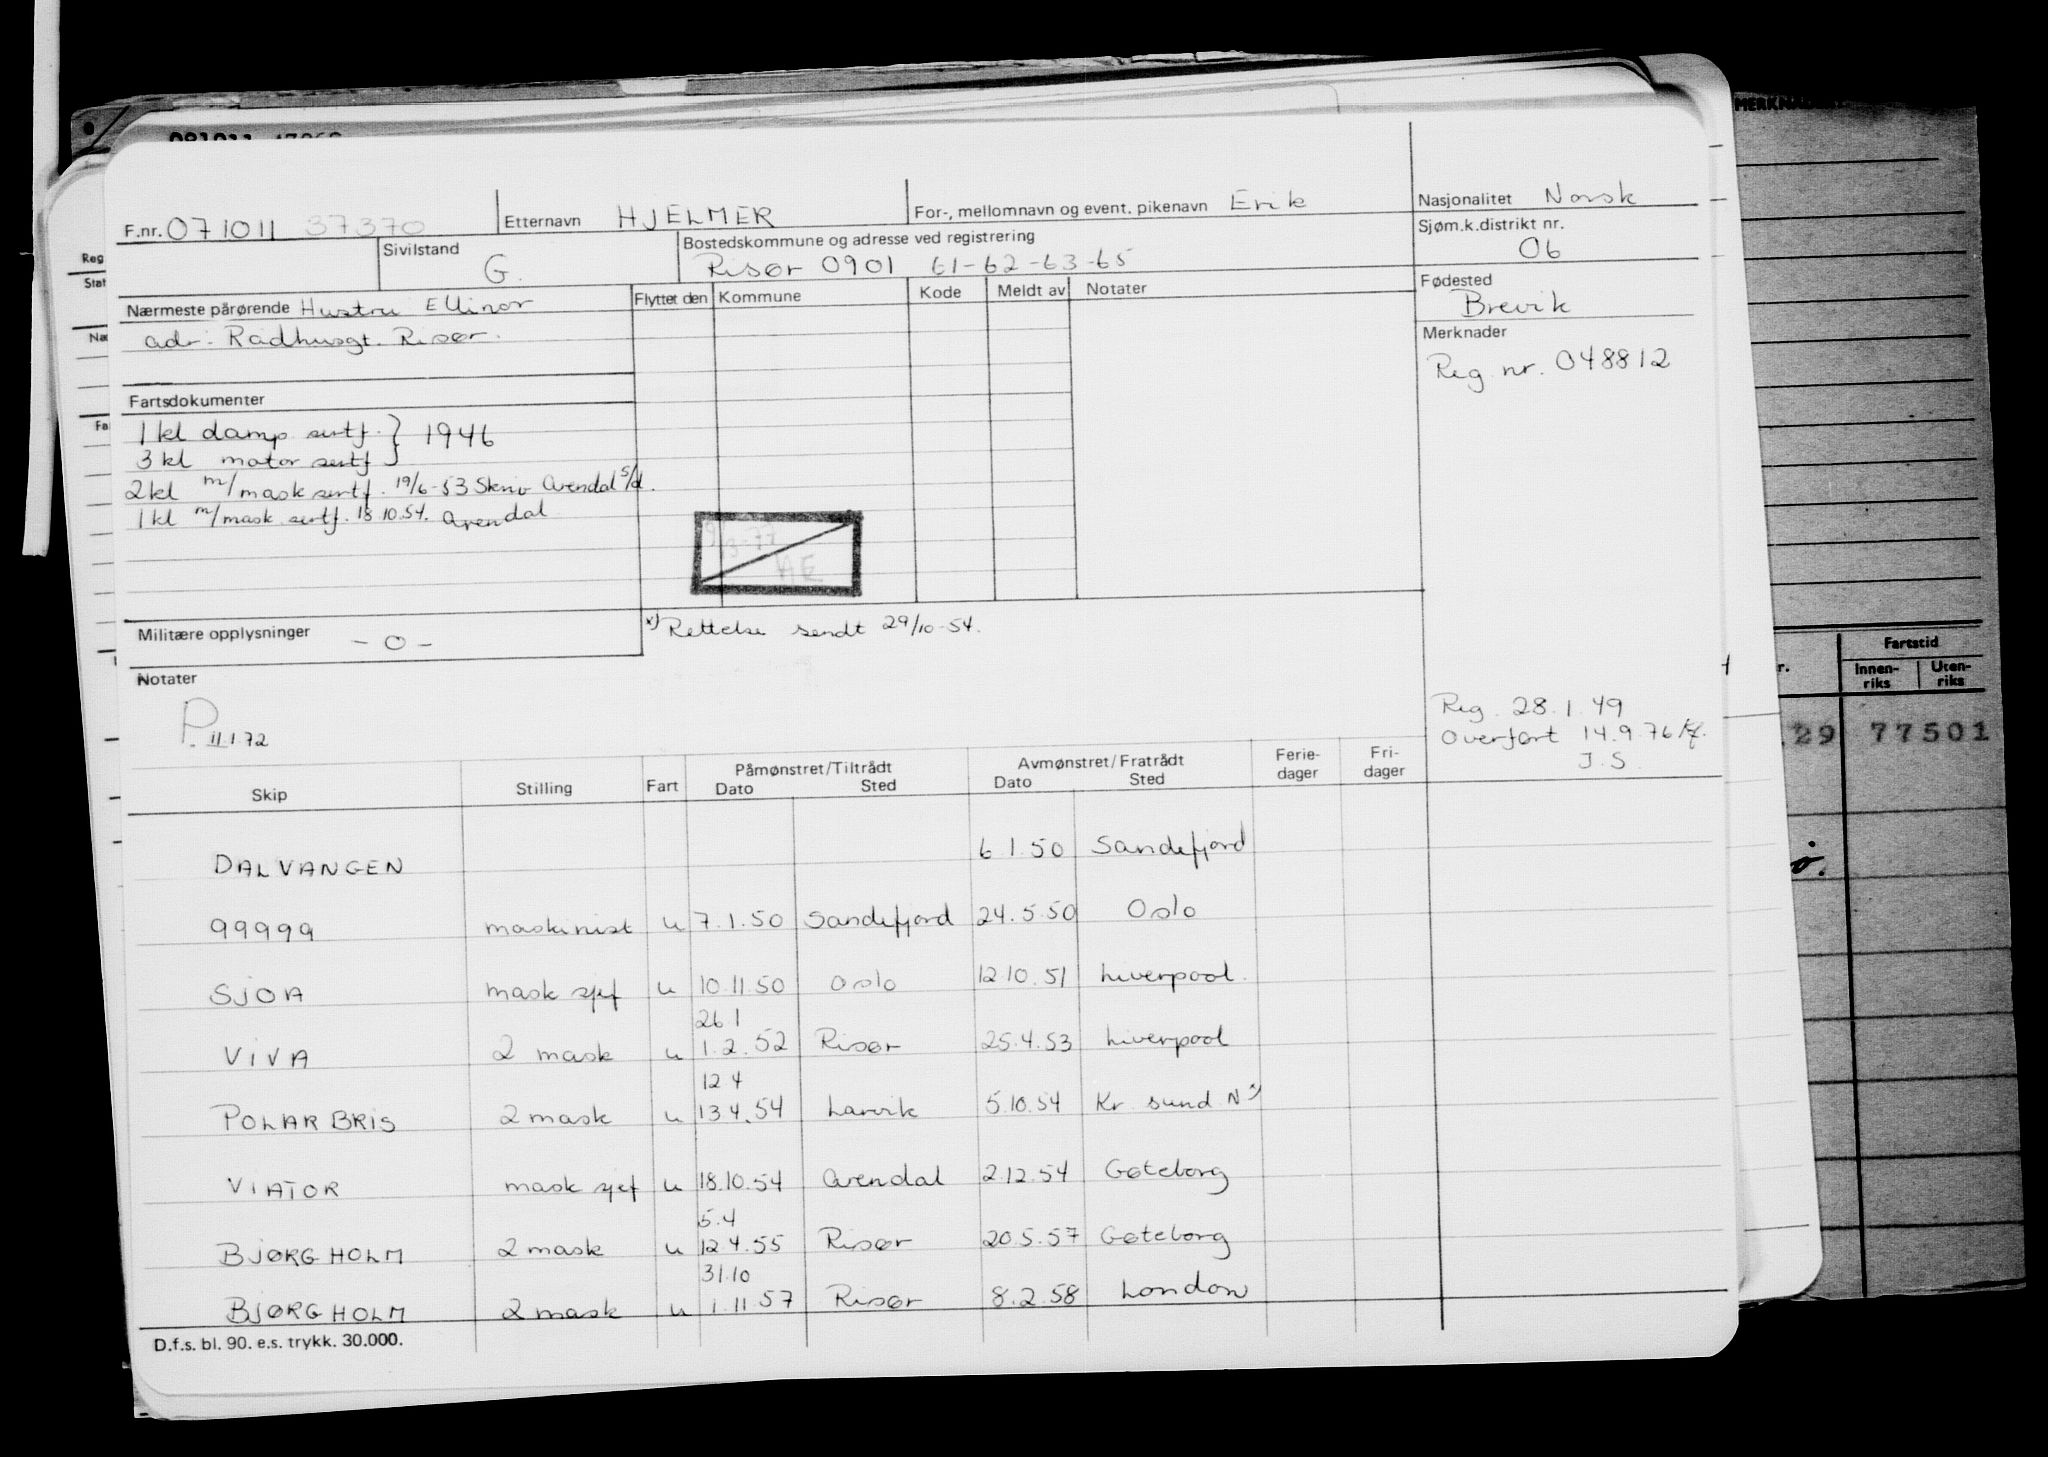 MERKNADER
F.nr. 071011 37370 Etternavn HJELMER For-, mellomnavn og event. pikenavn Erik Nasjonalitet Norsk
Sivilstand G. Bostedskommune og adresse ved registrering Sjøm.k.distrikt nr. 06
Risør 0901 61-62-63-65
Nærmeste pårørende Hustru Ellinor Flyttet den Kommune Kode Meldt av Notater Fødested
Brevik
adr: Rådhusgt. Risør. Merknader
Reg. nr. 048812
Fartsdokumenter
1 kl damp sertf. } 1946
3 kl motor sertf
2 kl m/mask sertf. 19/6-53 Skriv Arendal s/d.
1 kl m/mask sertf. 18.10.54. Arendal
9/3-77
AE
Militære opplysninger - 0 - x) Rettelse sendt 29/10-54.
Notater
P. 11.1.72
Reg. 28.1.49
Overført 14.9.76
J.S.
Skip Stilling Fart Påmønstret/Tiltrådt Avmønstret/Fratrådt Ferie-dager Fri-dager
Dato Sted Dato Sted
DALVANGEN 6.1.50 Sandefjord
99999 maskinist u 7.1.50 Sandefjord 24.5.50 Oslo
SJOA mask sjef u 10.11.50 Oslo 12.10.51 Liverpool.
26.1
VIVA 2 mask u 1.2.52 Risør 25.4.53 Liverpool
12.4
POLARBRIS 2 mask u 13.4.54 Larvik 5.10.54 Kr. sund N x)
VIATOR mask sjef u 18.10.54 Arendal 2.12.54 Gøteborg
5.4
BJØRGHOLM 2 mask u 12.4.55 Risør 20.5.57 Gøteborg
31.10
BJØRGHOLM 2 mask u 1.11.57 Risør 8.2.58 London
D.f.s. bl. 90. e.s. trykk. 30.000.
Fartstid
Innen-riks Uten-riks
29 77501